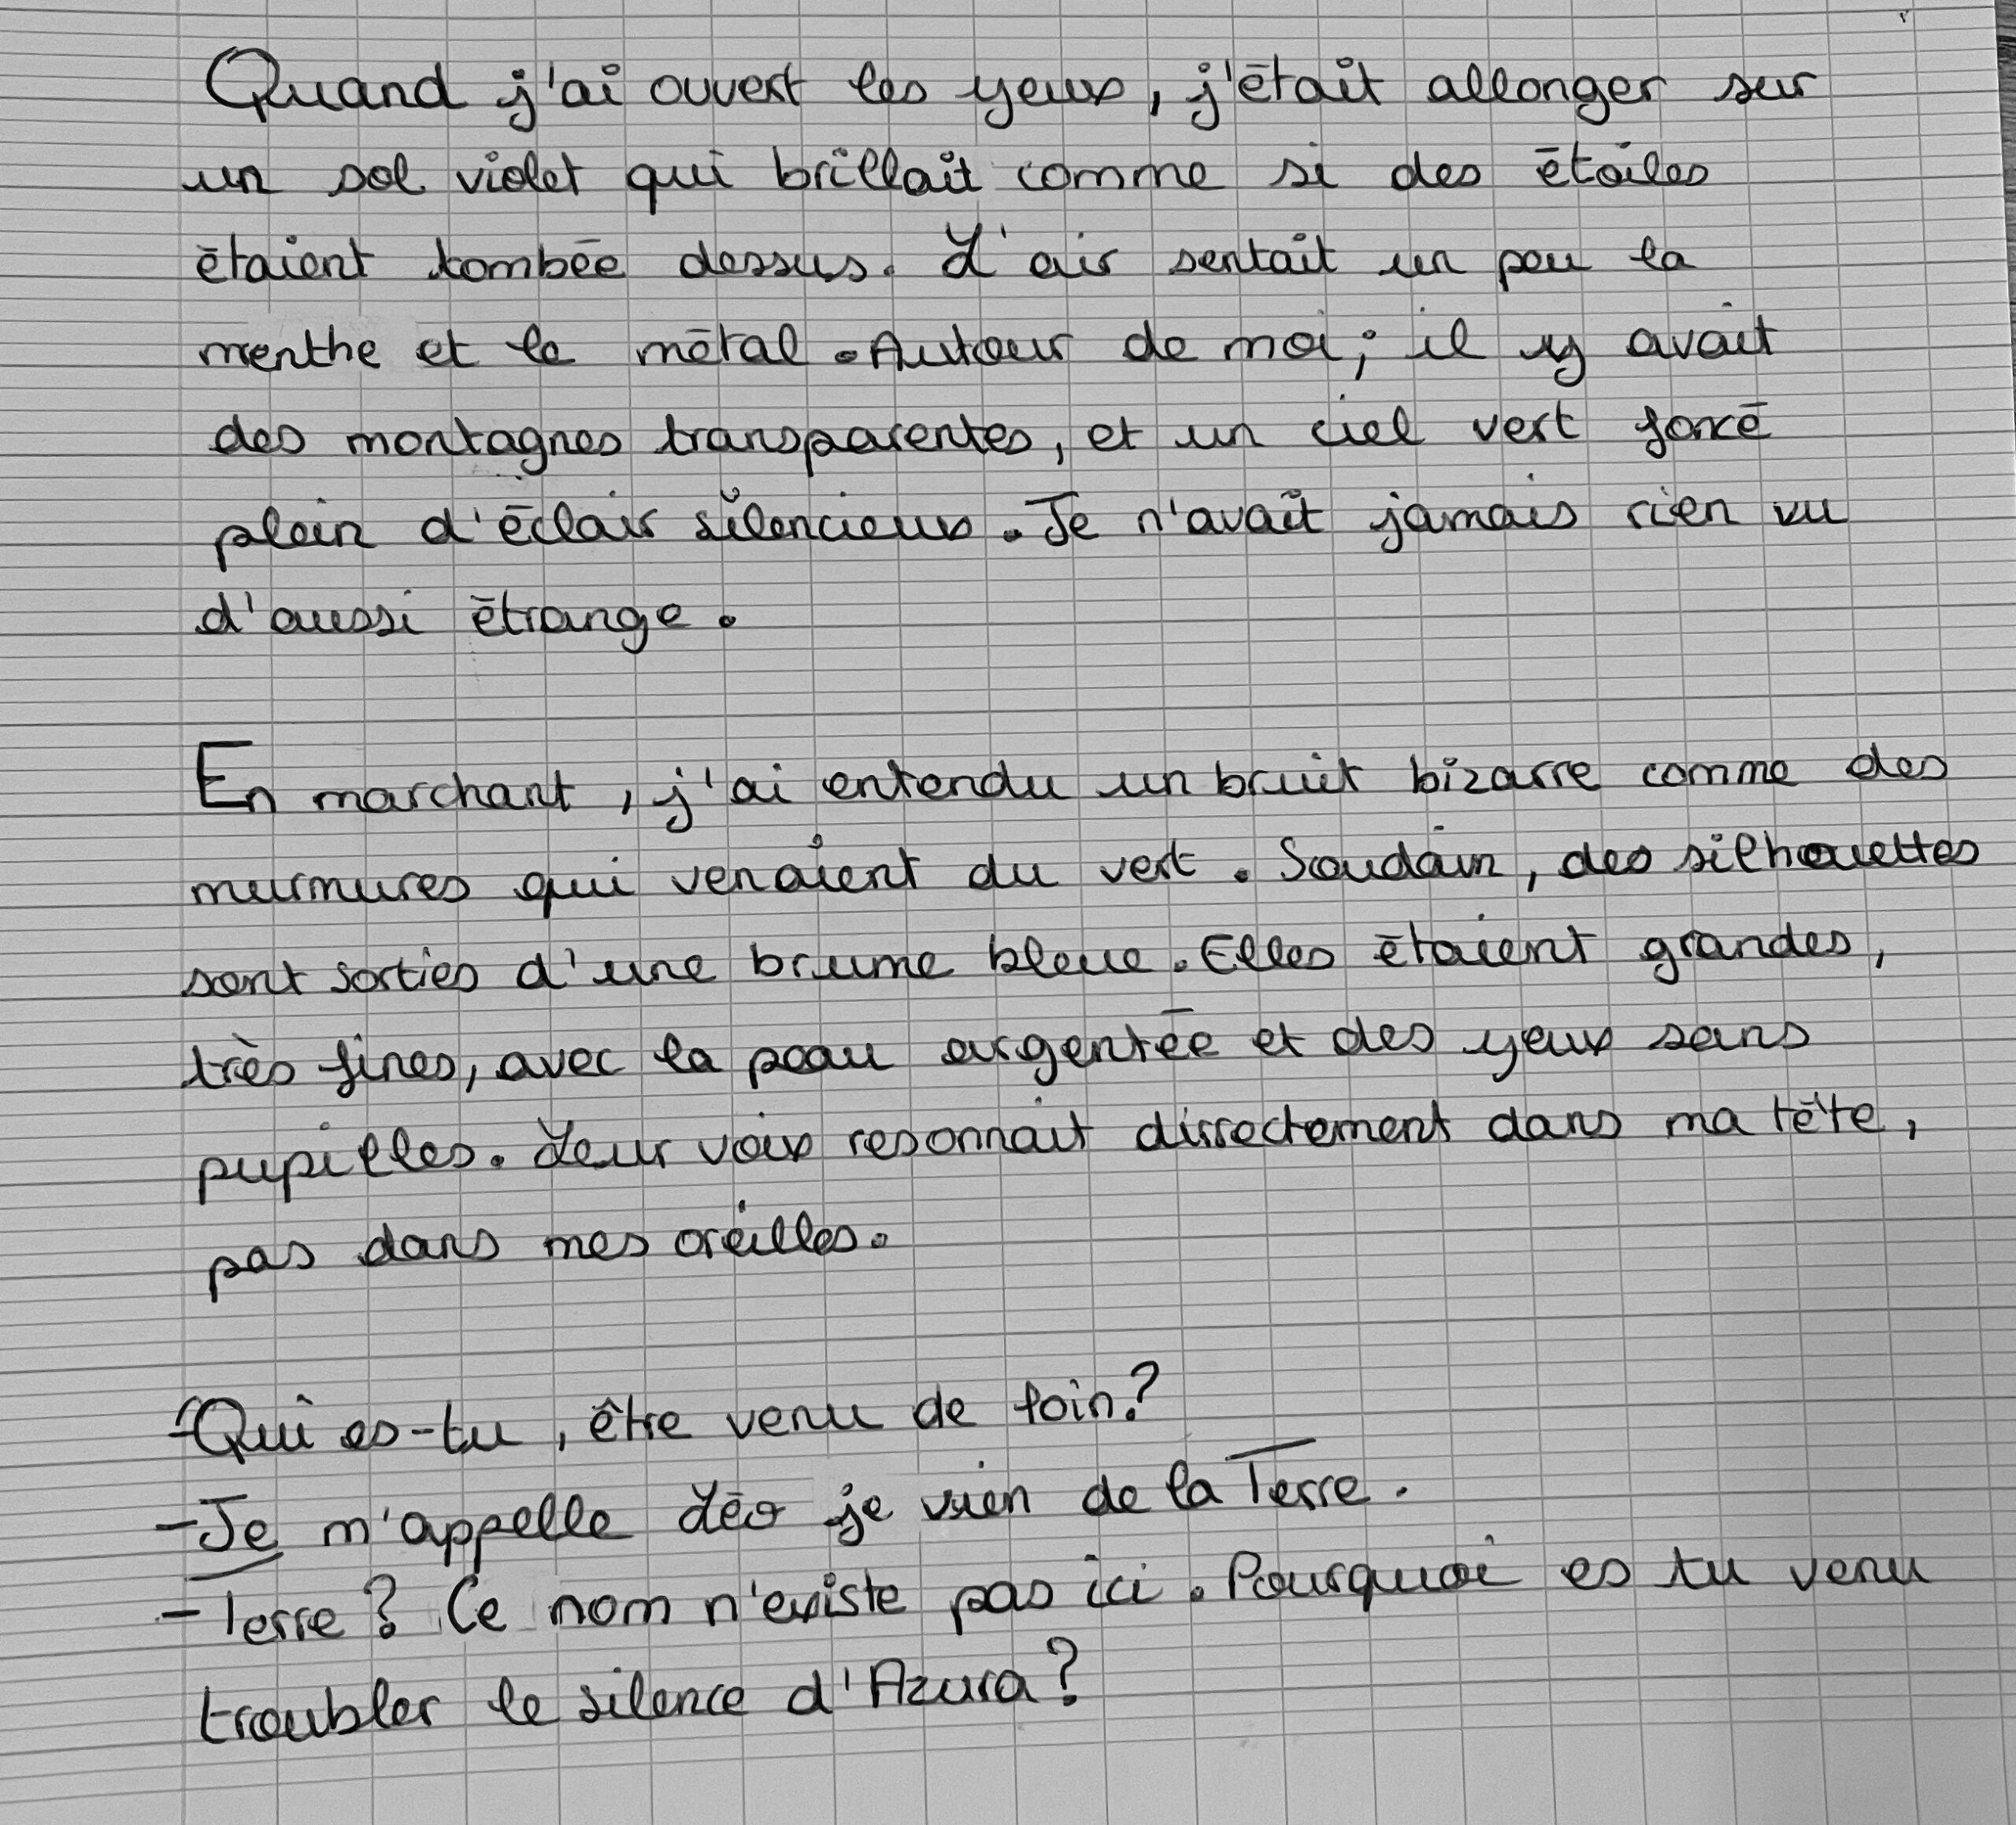 Quand j'ai ouvert les yeux, j'était allonger sur
un sol violet qui brillait comme si des étoiles
étaient tombée dessus. L'air sentait un peu la
menthe et le métal. Autour de moi, il y avait
des montagnes transparentes, et un ciel vert foncé
plein d'éclair silencieux. Je n'avait jamais rien vu
d'aussi étrange.
En marchant, j'ai entendu un bruit bizarre comme des
murmures qui venaient du vert. Soudain, des silhouettes
sont sorties d'une brume bleue. Elles étaient grandes,
très fines, avec la peau argentée et des yeux sans
pupilles. Leur voix resonnait dirrectement dans ma tête,
pas dans mes oreilles.
-Qui es-tu, être venu de loin?
-Je m'appelle Léo je vien de la Terre.
-Terre? Ce nom n'existe pas ici. Pourquoi es tu venu
troubler le silence d'Azura?